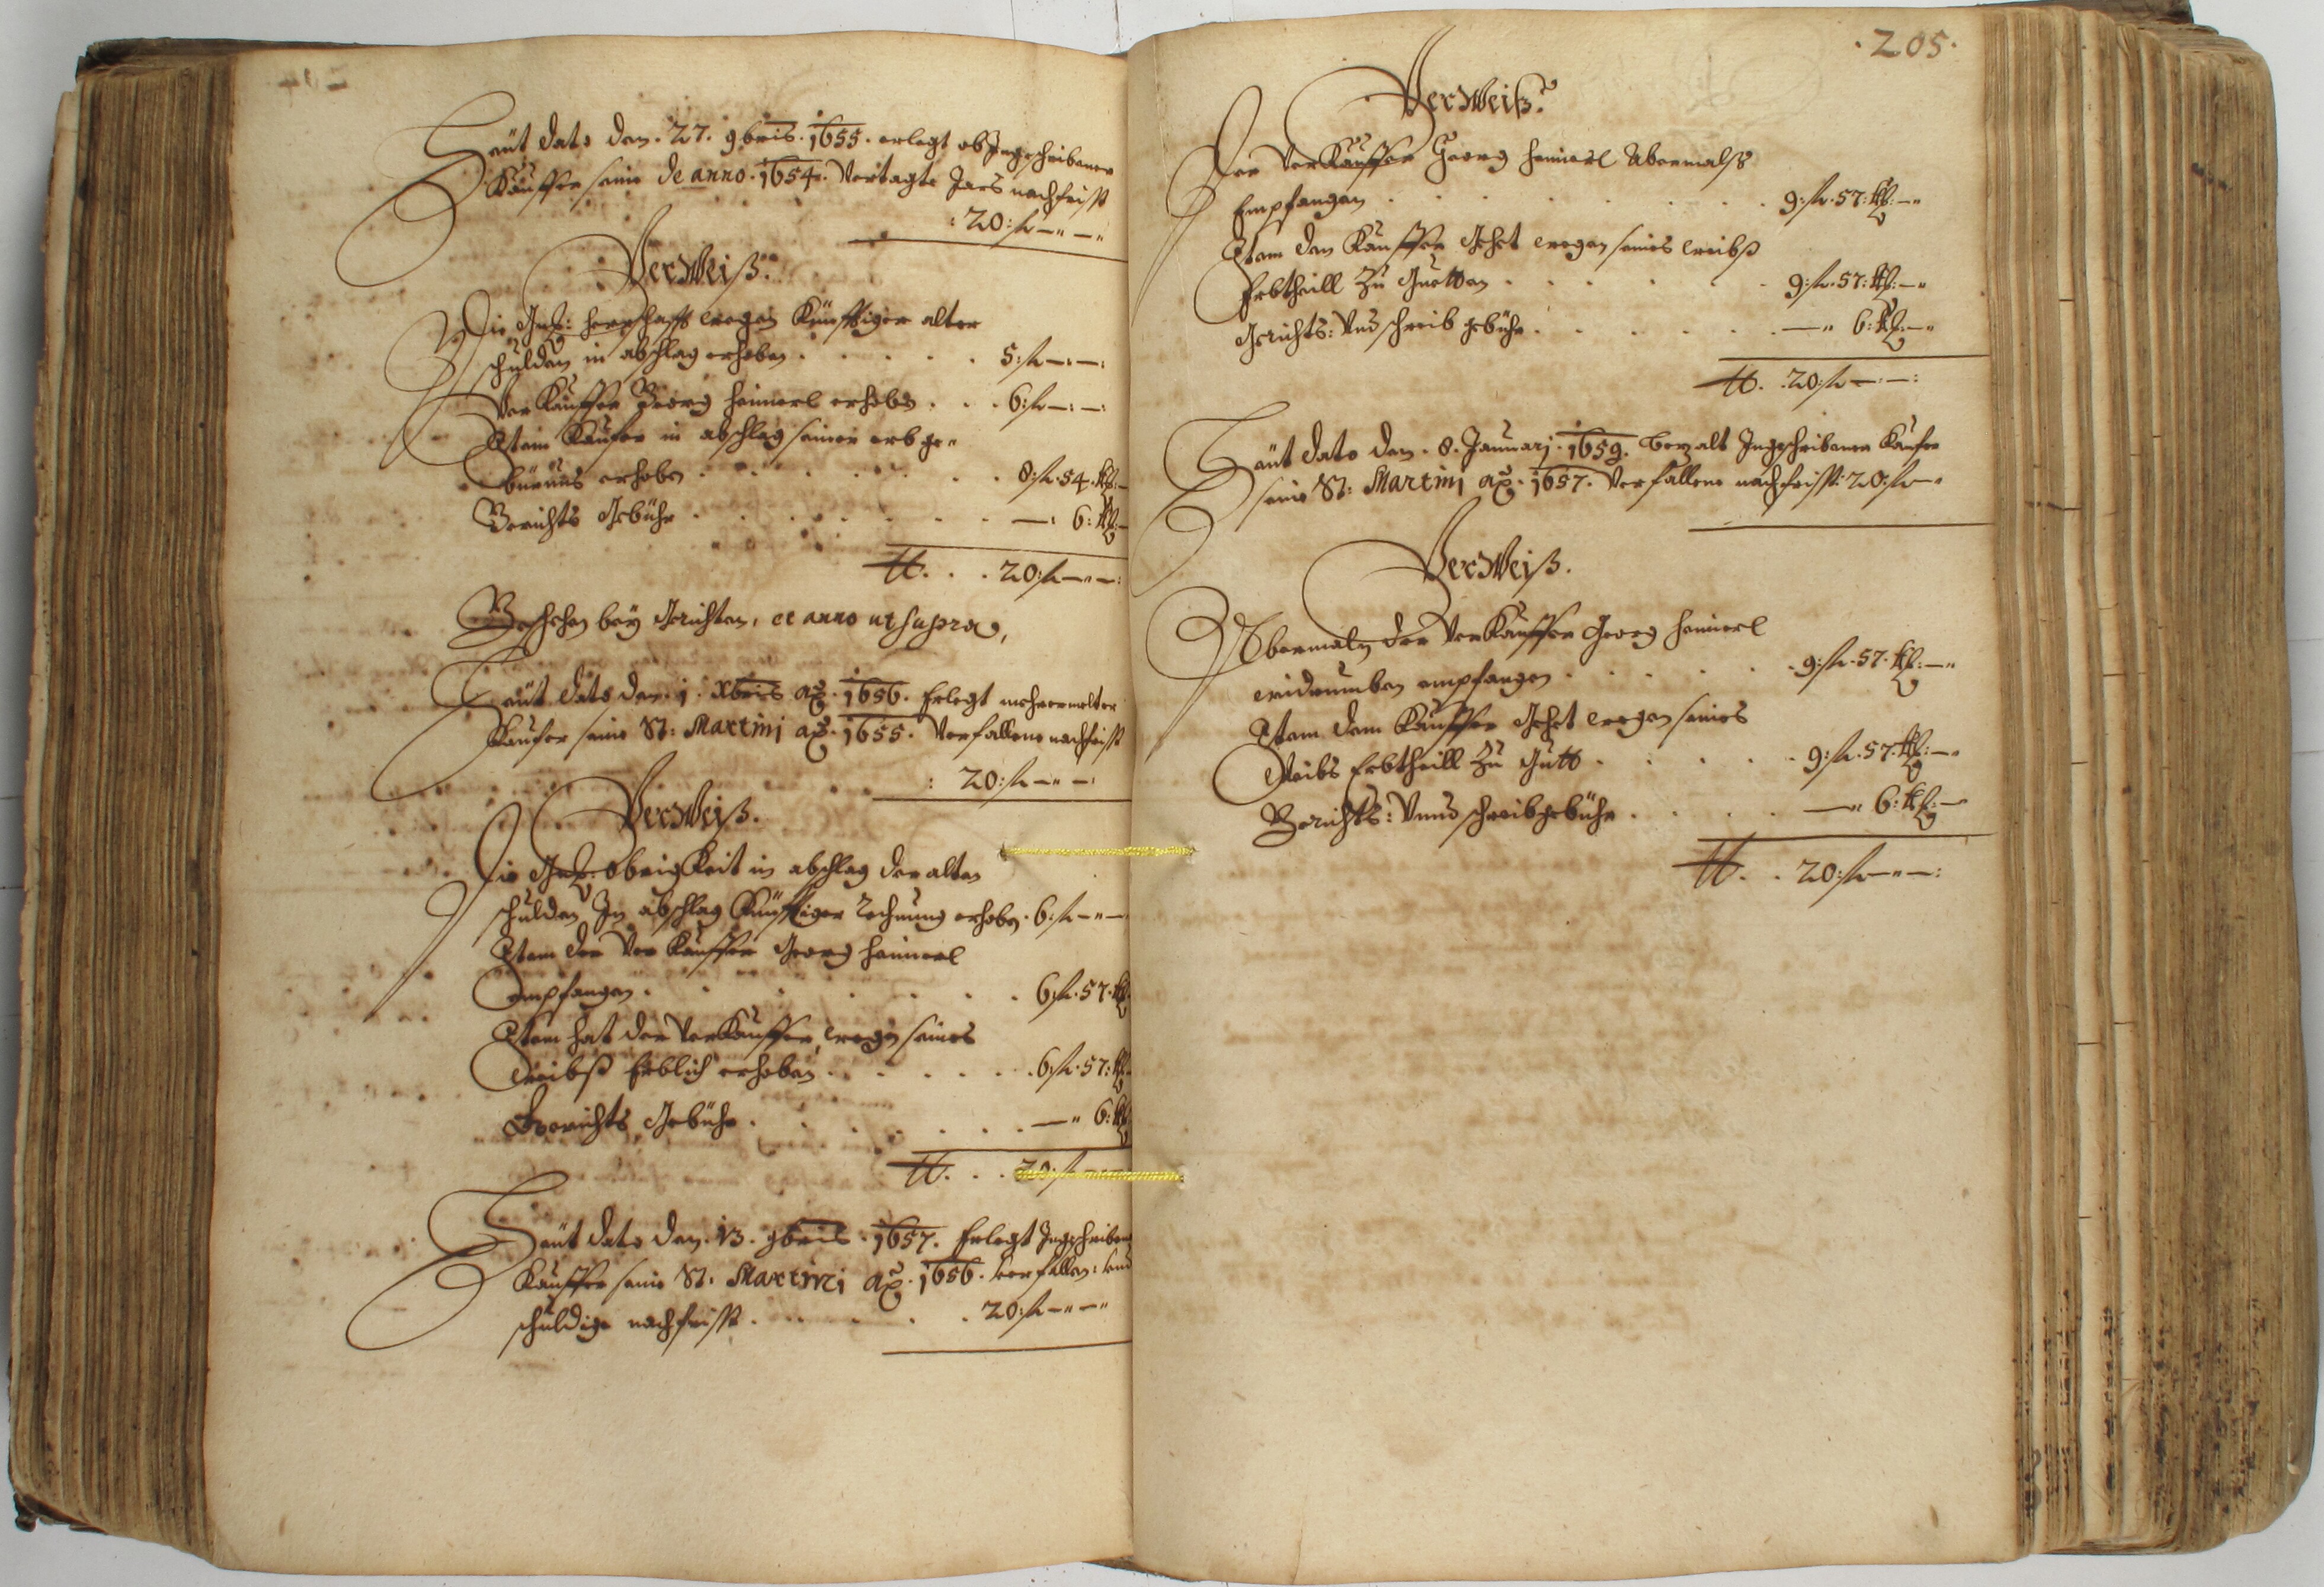 Heüt dato den. 27. 9bris. 1655. erlegt ob Ingeschribener
Kauffer seine de anno. 1654. Vertagte Jars nachfrist
: 20: fl —" —"
VerWeiß.
Die Gnd: herrschafft wegen Künfftiger alter
schulden in abschlag erhoben . . . . . 5: fl —: —:
Verkauffer Georg Heinerl erhoben . . . 6: fl —: —:
Item Kaufer in abschlag seiner erb ge-
bürnus erhoben . . . . . . . 8: fl. 54. kr: —
Gerichts Gebühr . . . . . . . —: 6: kr: —
tt. . . 20: fl —" —:
Geschehen beÿ Gerichten, et anno ut supra,
Heüt dato den. 1. Xbris ao. 1656. Erlegt mehrermelter
Kaufer seine St: Martinj ao. 1655. Verfallene nachfrist
: 20: fl —" —:
VerWeiß.
Die Gnd: obrigKeit in abschlag der alten
schulden In abschlag Künfftiger Rechnung erhoben. 6: fl —" —
Item der VerKauffer Georg Heinerl
empfangen . . . . . . . 6: fl. 57. kr
Item hat der VerKauffer, wegen seines
Weibß Erblich erhoben . . . . . . 6: fl. 57: kr
Gerichts Gebühr . . . . . . . —" 6: kr
tt. . . 20: fl
Heüt dato den. 13. 9bris. 1657. Erlegt Ingeschribner
Kauffer seine St: Martini ao. 1656. verfallen: vnd
schuldige nachfrist . . . . . 20: fl —" —"
. 205 .
VerWeiß.
Der VerKauffer Georg Heinerl Abermalß
Empfangen . . . . . . . 9: fl. 57: kr: —"
Item den Kauffer Gehet wegen seines Weibß
Erbtheill Zu Guetten . . . . . 9: fl. 57: kr: —"
Gerichts: Vnd schreib gebühr . . . . . —" 6: kr: —"
tt. . 20: fl —: —:
Heüt dato den. 8. Januarj. 1659. Bezalt Ingeschribener Kaufer
seine St: Martinj ao. 1657. Verfallene nachfrist: 20: fl —"
VerWeiß.
Abermaln der VerKauffer Georg Heinerl
widerumben empfangen . . . . . 9: fl. 57. kr: —"
Item dem Kauffer Gehet wegen seines
Weibs Erbtheill Zu Gutt . . . . . 9: fl. 57: kr: —"
Gerichts: Vnnd schreibgebühr . . . . —" 6: kr: —"
tt. . 20: fl —" —: